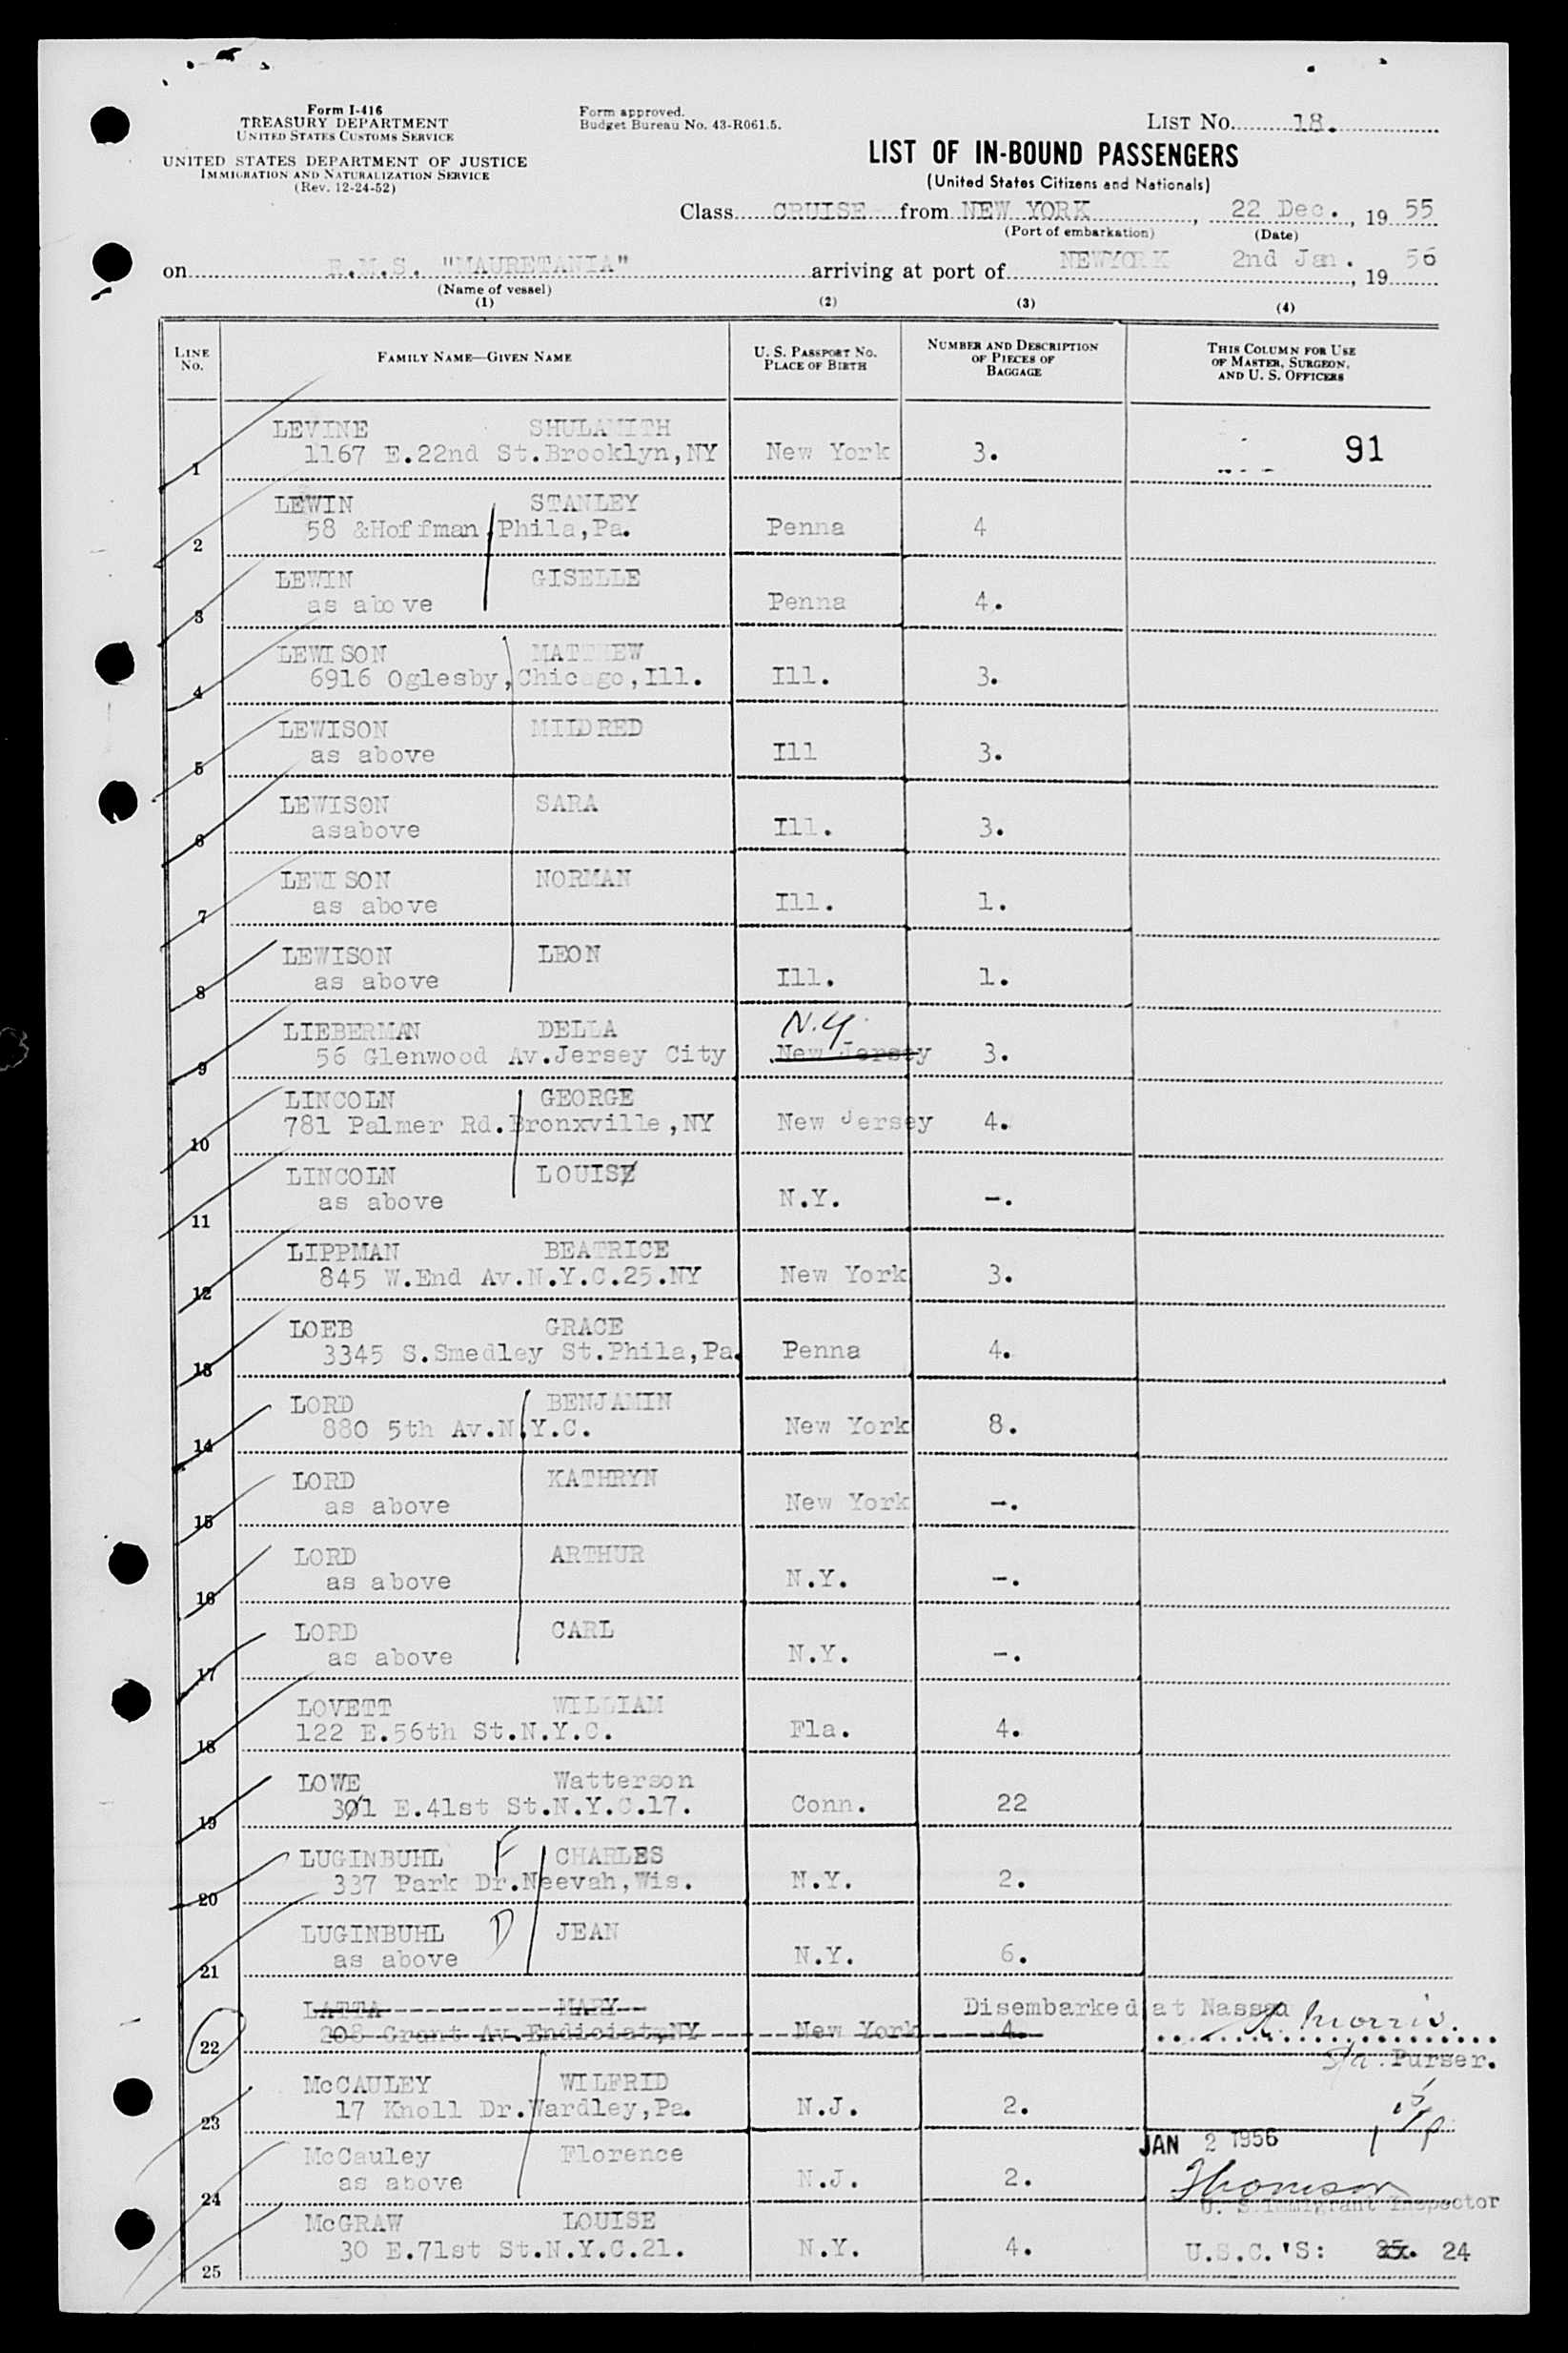 Form I-416
TREASURY DEPARTMENT
UNITED STATES CUSTOMS SERVICE
UNITED STATES DEPARTMENT OF JUSTICE
IMMIGRATION AND NATURALIZATION SERVICE
(Rev. 12-24-52)
Form approved.
Budget Bureau No. 43-R061.5.
LIST NO. 18.
LIST OF IN-BOUND PASSENGERS
(United States Citizens and Nationals)
Class CRUISE from NEW YORK, 22 Dec., 19 55
(Port of embarkation) (Date)
on R.M.S. "MAURETANIA" arriving at port of NEWYORK 2nd Jan., 19 56
(Name of vessel)
(1) (2) (3) (4)
LINE No. FAMILY NAME—GIVEN NAME U. S. PASSPORT NO. PLACE OF BIRTH NUMBER AND DESCRIPTION OF PIECES OF BAGGAGE THIS COLUMN FOR USE OF MASTER, SURGEON, AND U. S. OFFICERS
LEVINE SHULAMITH
1 1167 E.22nd St.Brooklyn,NY New York 3. 91
LEWIN STANLEY
2 58 &Hoffman,Phila,Pa. Penna 4
LEWIN GISELLE
3 as above Penna 4.
LEWISON MATTHEW
4 6916 Oglesby,Chicago,Ill. Ill. 3.
LEWISON MILDRED
5 as above Ill 3.
LEWISON SARA
6 asabove Ill. 3.
LEWISON NORMAN
7 as above Ill. 1.
LEWISON LEON
8 as above Ill. 1.
LIEBERMAN DELLA N.Y.
9 56 Glenwood Av.Jersey City New Jersey 3.
LINCOLN GEORGE
10 781 Palmer Rd.Bronxville,NY New Jersey 4.
LINCOLN LOUISE
11 as above N.Y. -.
LIPPMAN BEATRICE
12 845 W.End Av.N.Y.C.25.NY New York 3.
LOEB GRACE
13 3345 S.Smedley St.Phila,Pa. Penna 4.
LORD BENJAMIN
14 880 5th Av.N.Y.C. New York 8.
LORD KATHRYN
15 as above New York -.
LORD ARTHUR
16 as above N.Y. -.
LORD CARL
17 as above N.Y. -.
LOVETT WILLIAM
18 122 E.56th St.N.Y.C. Fla. 4.
LOWE Watterson
19 301 E.41st St.N.Y.C.17. Conn. 22
LUGINBUHL F CHARLES
20 337 Park Dr.Neevah,Wis. N.Y. 2.
LUGINBUHL D JEAN
21 as above N.Y. 6.
LATTA MARY Disembarked at Nassau
22 208 Grant Av.Endiciat,NY New York 4. Morris.
Purser.
McCAULEY WILFRID
23 17 Knoll Dr.Wardley,Pa. N.J. 2.
JAN 2 1956
McCauley Florence
24 as above N.J. 2. Thomson
U. S. Immigrant Inspector
McGRAW LOUISE
25 30 E.71st St.N.Y.C.21. N.Y. 4. U.S.C.'S: 25. 24